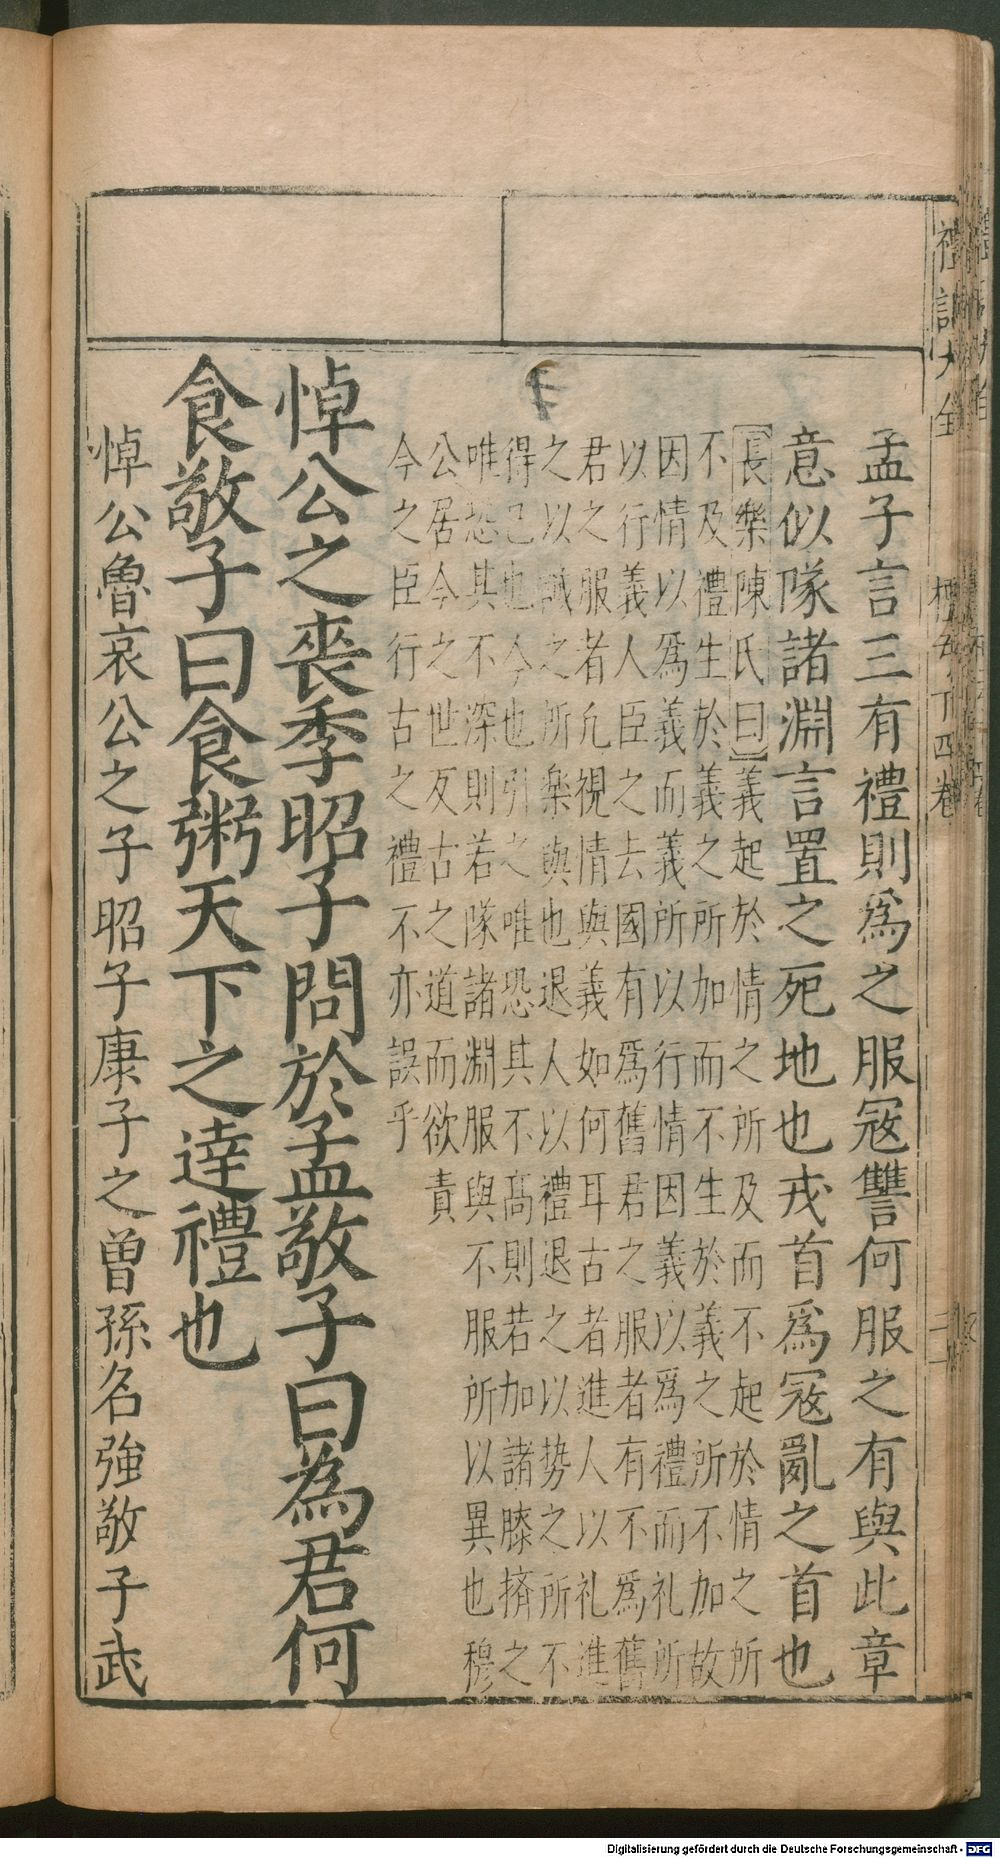 禮記大全
檀弓下四卷
孟子言三有禮則爲之服宼讐何服之有與此章
意似隊諸淵言置之死地也戎首爲宼亂之首也
長樂陳氏曰義起於情之所及而不起於情之所
不及禮生於義之所加而不生於義之所不加故
因情以爲義而義所以行情因義以爲禮而礼所
以行義人臣之去國有爲舊君之服者有不爲舊
君之服者凢視情與義如何耳古者進人以礼進
之以誠之所樂與也退人以禮退之以勢之所不
得已也今也引之唯恐其不髙則若加諸膝擠之
唯恐其不深則若隊諸淵服與不服所以異也穆
公居今之世反古之道而欲責
今之臣行古之禮不亦誤乎
悼公之喪季昭子問於孟敬子曰為君何
食敬子曰食粥天下之達禮也
悼公魯哀公之子昭子康子之曽孫名強敬子武
Digitalisierung gefördert durch die Deutsche Forschungsgemeinschaft - DFG